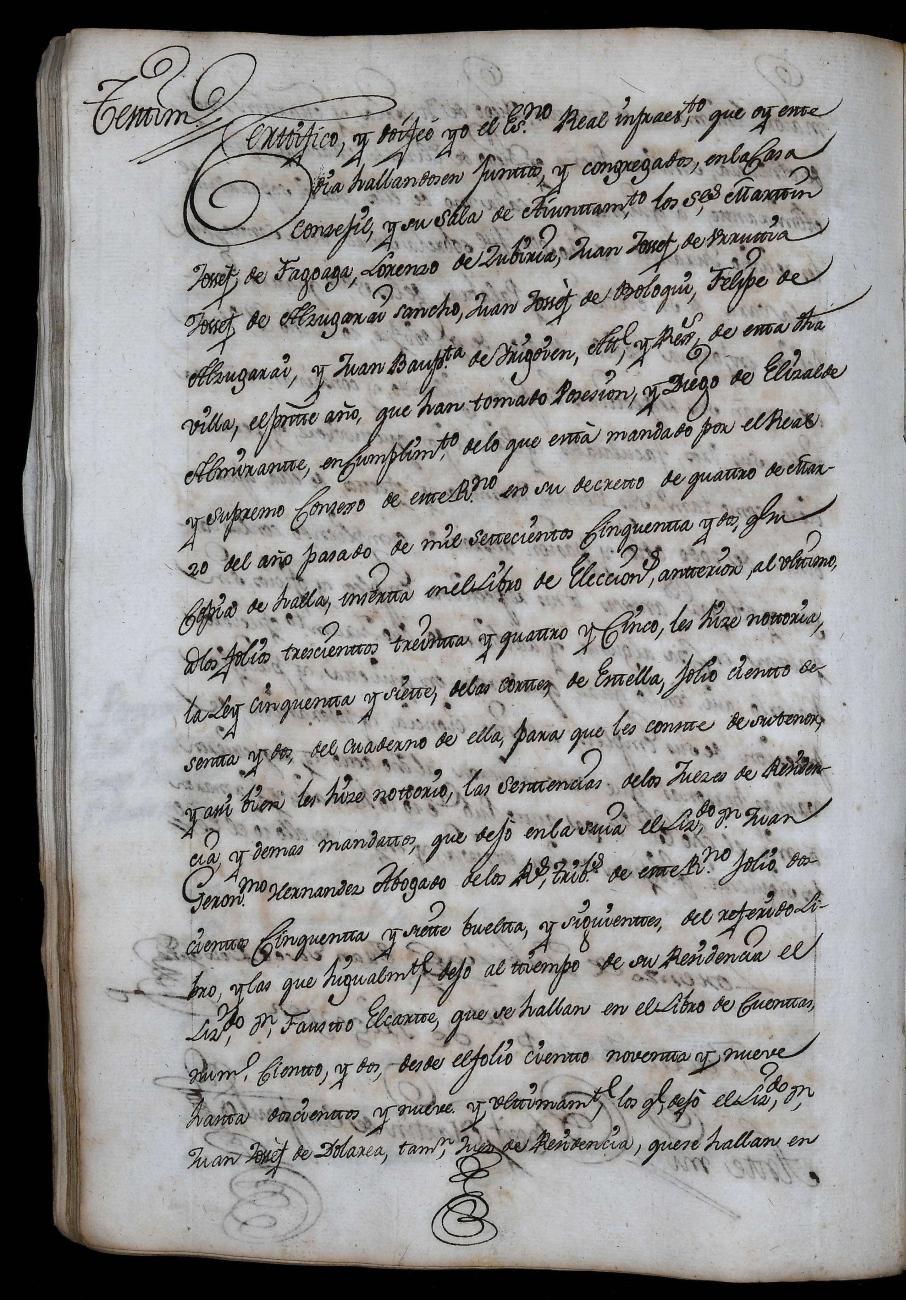 Testim.º
Certtifico, y doi feé yo el Es.no Real infraes.to que oy este
dia hallandosen Junttos, y congregados, en la Casa
Conzejil, y su Sala de Aiunttam.to los S.es Marttin
Josseph de Fagoaga, Lorenzo de Zubiria, Juan Josseph de Vrruttia
Josseph de Alzugarai Sancho, Juan Josseph de Boloqui, Felipe de
Alzugarai, y Juan Baup.ta de Irigoien, Alc.e, y Reg.s, de esta dha
villa, el prnte año, que han tomado Posesion, y Diego de Elizalde
Almirantte, en Cumplim.to delo que està mandado por el Real
y Supremo Consejo de este R.no en su decretto de quattro de Mar-
zo del año pasado de mil settecientos Cinquentta y dos, q.e su
Copia de halla, insertta en el Libro de Eleccion.s, antterior, al vlttimo,
alos folios trescienttos treintta y quattro y Cinco, les hize nottoria,
la Ley cinquentta y siette, delas Corttes de Estella, folio ciento se-
sentta y dos, del cuaderno de ella, para que les conste de su tenor,
y asi bien les hize nottorio, las Senttencias delos Juezes de Residen-
cia, y demas mandattos, que dejó en la suia el Liz.do Dn. Juan
Geron.mo Hernandez Abogado delos R.s Trib.s de este R.no folio dos-
cienttos Cinquentta y siette buelta, y siguienttes, del referido Li-
bro, y las que higualm.te dejó al ttiempo de su Residencia el
Liz.do Dn. Fausto Elcartte, que se hallan en el Libro de Cuenttas,
num.o Ciento, y dos, desde el folio ciento noventta y nueve
hasta doscienttos y nueve y vlttimam.te los q.e dejó el Liz.do Dn.
Juan Josseph de Dolarea, tam.n Juez de Residencia, que se hallan en